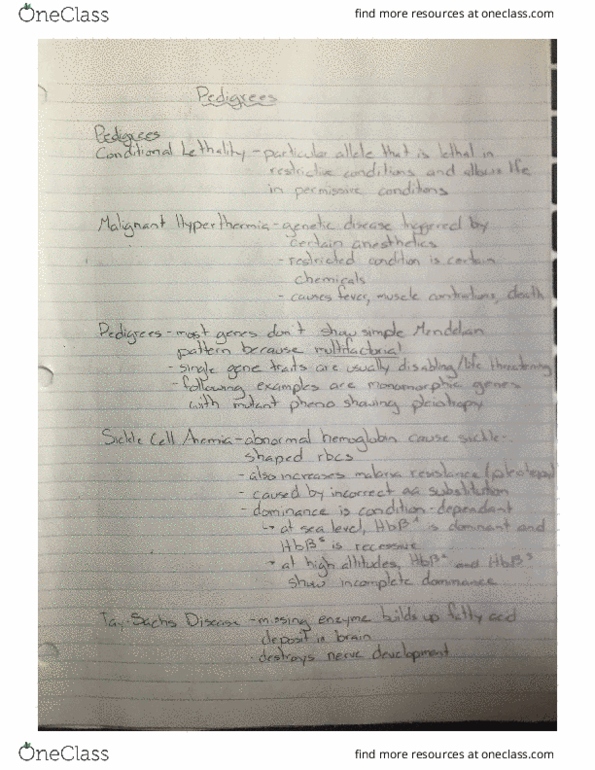 OneClass
find more resources at oneclass.com
Pedigrees
Pedigrees
Conditional Lethality - particular allele that is lethal in
restrictive conditions and allows life
in permissive conditions
Malignant Hyperthermia - genetic disease triggered by
certain anesthetics
- restricted condition is certain
chemicals
- causes fever, muscle contractions, death
Pedigrees - most genes don't show simple Mendelian
pattern because multifactorial
- single gene traits are usually disabling/life threatening
- following examples are monomorphic genes
with mutant pheno showing pleiotropy
Sickle Cell Anemia - abnormal hemoglobin cause sickle-
shaped rbcs
- also increases malaria resistance
- caused by incorrect aa substitution
- dominance is condition-dependent
↳ at sea level, HbBᴬ is dominant and
HbBˢ is recessive
→ at high altitudes, HbBᴬ and HbBˢ
show incomplete dominance
Tay-Sachs Disease - missing enzyme builds up fatty acid
deposit in brain
- destroys nerve development
OneClass
find more resources at oneclass.com